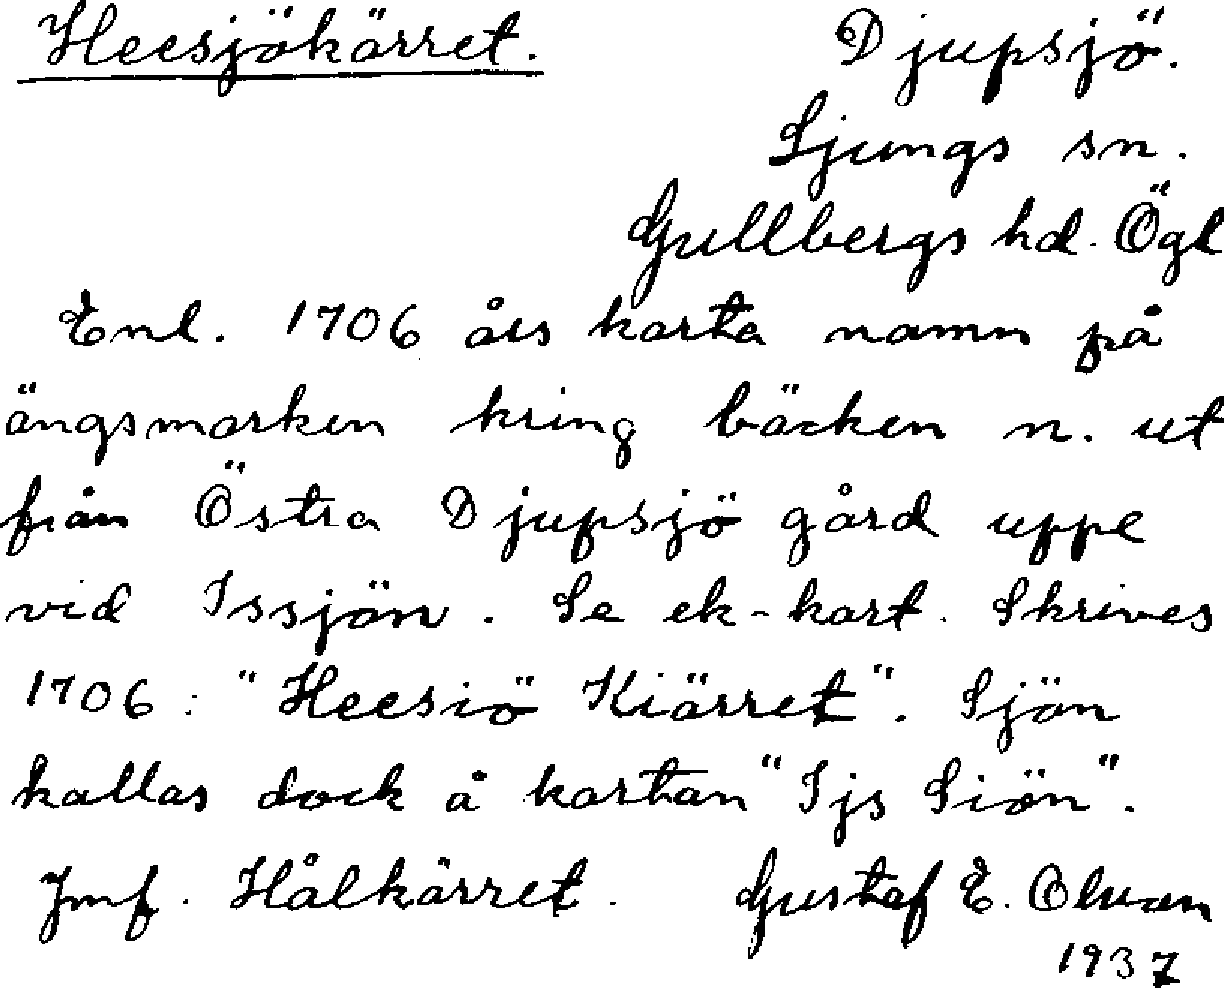 Heesjökärret. Djupsjö.
Ljungs sn.
Gullbergs hd. Ögl
Enl. 1706 års karta namn på
ängsmarken kring bäcken n. ut
från Östra Djupsjö gård uppe
vid Issjön. Se ek-kart. Skrives
1706: "Heesiö Kiärret". Sjön
kallas dock å kartan "Ijs Siön".
Jmf. Hålkärret. Gustaf E.
1937